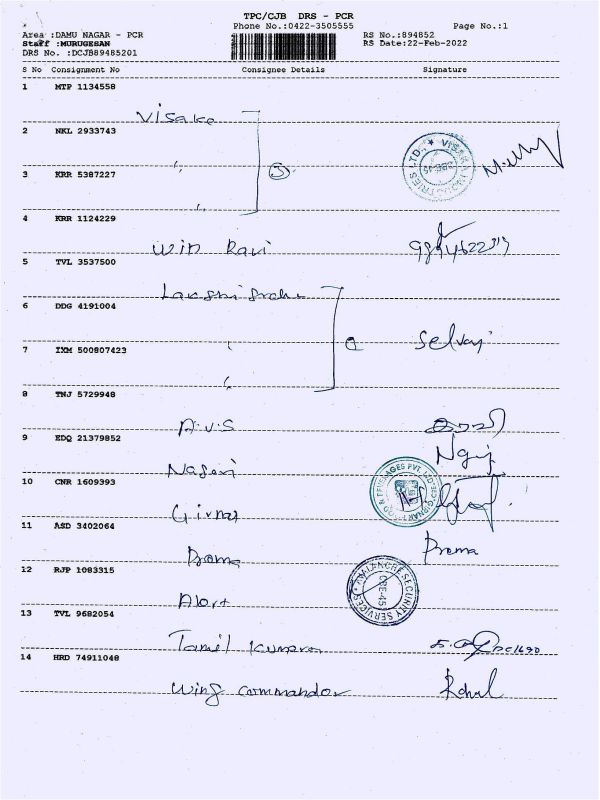 TPC/CJB DRS - PCR
Phone No.:0422-3505555 Page No.:1
Area :DAMU NAGAR - PCR RS No.:894852
Staff :MURUGESAN RS Date:22-Feb-2022
DRS No. :DCJB89485201
S No Consignment No Consignee Details Signature
1 MTP 1134558
Visaka
2 NKL 2933743
"
3 KRR 5387227
"
VISAKA INDUSTRIES LTD., CBE-45
4 KRR 1124229
Win Ravi
5 TVL 3537500
6 DDG 4191004
7 IXM 500807423
"
Selvaj
8 TNJ 5729948
A.V.S
9 EDQ 21379852
10 CNR 1609393
Girnar
11 ASD 3402064
Prema Prema
12 RJP 1083315
Alert
AVALANCHE SECURITY SERVICES CBE-45
13 TVL 9682054
Tamil Kumaran
14 HRD 74911048
Wing commander Rahul